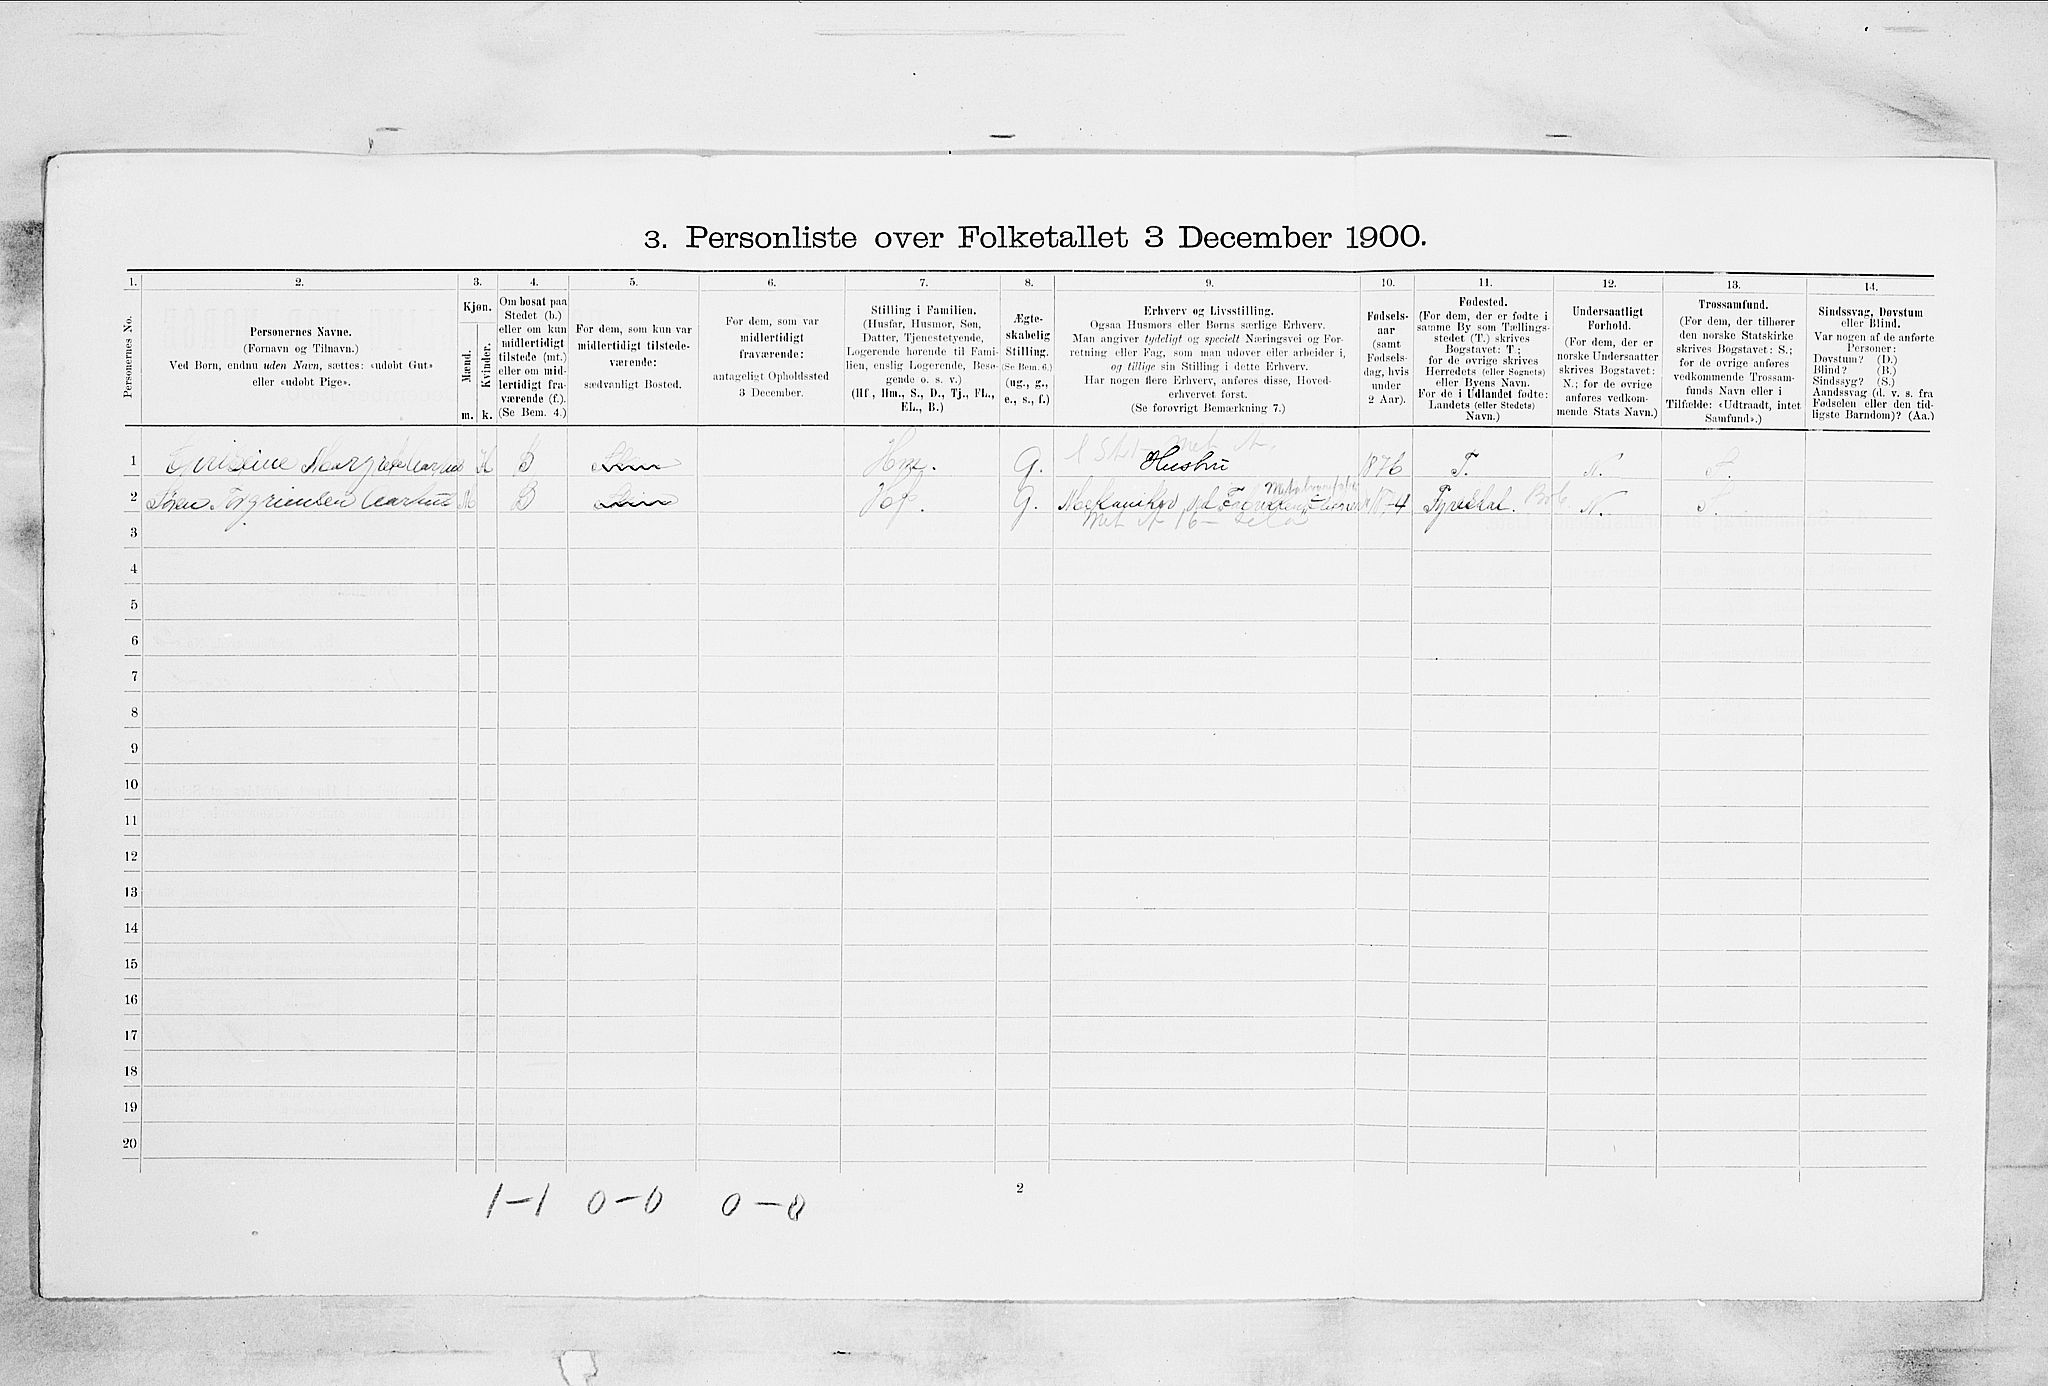 3. Personliste over Folketallet 3 December 1900.
1. 2. 3. 4. 5. 6. 7. 8. 9. 10. 11. 12. 13. 14.
Personernes No.
Personernes Navne.
(Fornavn og Tilnavn.)
Ved Børn, endnu uden Navn, sættes: «udøbt Gut»
eller «udøbt Pige».
Kjøn.
Mænd.
Kvinder.
m. k.
Om bosat paa
Stedet (b.)
eller om kun
midlertidigt
tilstede (mt.)
eller om mid-
lertidigt fra-
værende (f.).
(Se Bem. 4.)
For dem, som kun var
midlertidigt tilstede-
værende:
sædvanligt Bosted.
For dem, som var
midlertidigt
fraværende:
antageligt Opholdssted
3 December.
Stilling i Familien.
(Husfar, Husmor, Søn,
Datter, Tjenestetyende,
Logerende hørende til Fami-
lien, enslig Logerende, Besø-
gende o. s. v.)
(Hf, Hm., S., D., Tj., FL.,
EL., B.)
Ægte-
skabelig
Stilling.
(Se Bem. 6.)
(ug., g.,
e., s., f.)
Erhverv og Livsstilling.
Ogsaa Husmors eller Børns særlige Erhverv.
Man angiver tydeligt og specielt Næringsvei og For-
retning eller Fag, som man udøver eller arbeider i,
og tillige sin Stilling i dette Erhverv.
Har nogen flere Erhverv, anføres disse, Hoved-
erhvervet først.
(Se forøvrigt Bemærkning 7.)
Fødsels-
aar
(samt
Fødsels-
dag, hvis
under
2 Aar).
Fødested.
(For dem, der er fødte i
samme By som Tællings-
stedet (T.) skrives
Bogstavet: T.;
for de øvrige skrives
Herredets (eller Sognets)
eller Byens Navn.
For de i Udlandet fødte:
Landets (eller Stedets)
Navn.)
Undersaatligt
Forhold.
(For dem, der er
norske Undersaatter
skrives Bogstavet:
N.; for de øvrige
anføres vedkom-
mende Stats Navn.)
Trossamfund.
(For dem, der tilhører
den norske Statskirke
skrives Bogstavet: S.;
for de øvrige anføres
vedkommende Trossam-
funds Navn eller i
Tilfælde: «Udtraadt, intet
Samfund».)
Sindssvag, Døvstum
eller Blind.
Var nogen af de anførte
Personer:
Døvstum? (D.)
Blind? (B.)
Sindssyg? (S.)
Aandssvag (d. v. s. fra
Fødselen eller den tid-
ligste Barndom)? (Aa.)
1 K B Hm. G. Hustru 1876 T. N. S.
2 Søren Torgrimsen M B Hf. G. Tyvedal. N. S.
3
4
5
6
7
8
9
10
11
12
13
14
15
16
17
18
19
20
2
1-1 0-0 0-0